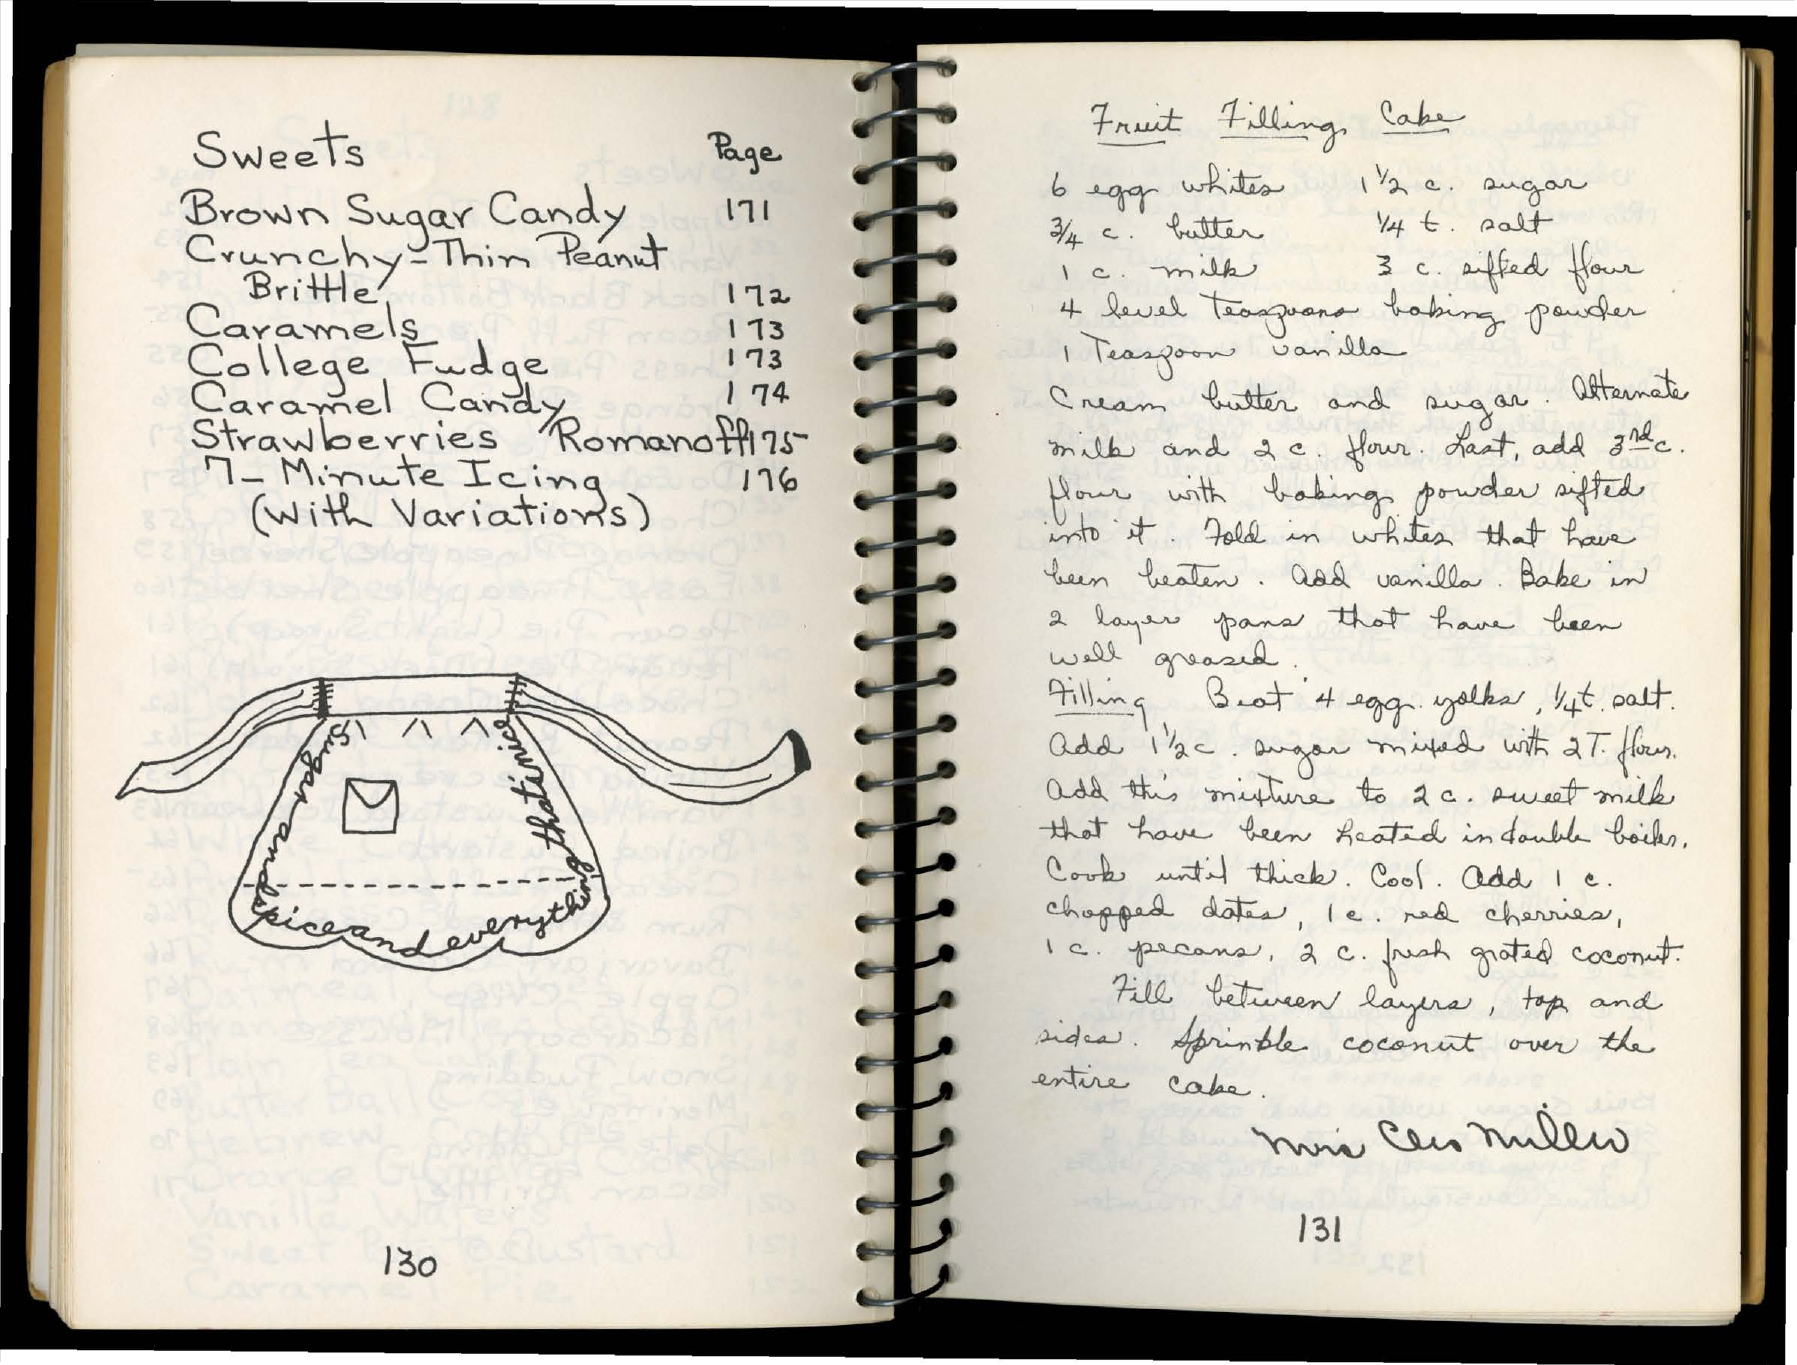 Sweets Page
Brown Sugar Candy 171
Crunchy-Thin Peanut
Brittle 172
Caramels 173
College Fudge 173
Caramel Candy 174
Strawberries Romanoff 175
7-Minute Icing 176
(With Variations)
Sugar and spice and everything that's nice
130
Fruit Filling Cake
6 egg whites 1 1/2 c. sugar
3/4 c. butter 1/4 t. salt
1 c. milk 3 c. sifted flour
4 level Teaspoons baking powder
1 Teaspoon vanilla
Cream butter and sugar. Alternate
milk and 2 c. flour. Last, add 3rd c.
flour with baking powder sifted
into it. Fold in whites that have
been beaten. Add vanilla. Bake in
2 layer pans that have been
well greased.
Filling Beat 4 egg yolks, 1/4 t. salt.
Add 1 1/2 c. sugar mixed with 2 T. flour.
Add this mixture to 2 c. sweet milk
that have been heated in double boiler.
Cook until thick. Cool. Add 1 c.
chopped dates, 1 c. red cherries,
1 c. pecans, 2 c. fresh grated coconut.
Fill between layers, top and
sides. Sprinkle coconut over the
entire cake.
Mrs Cleo Miller
131